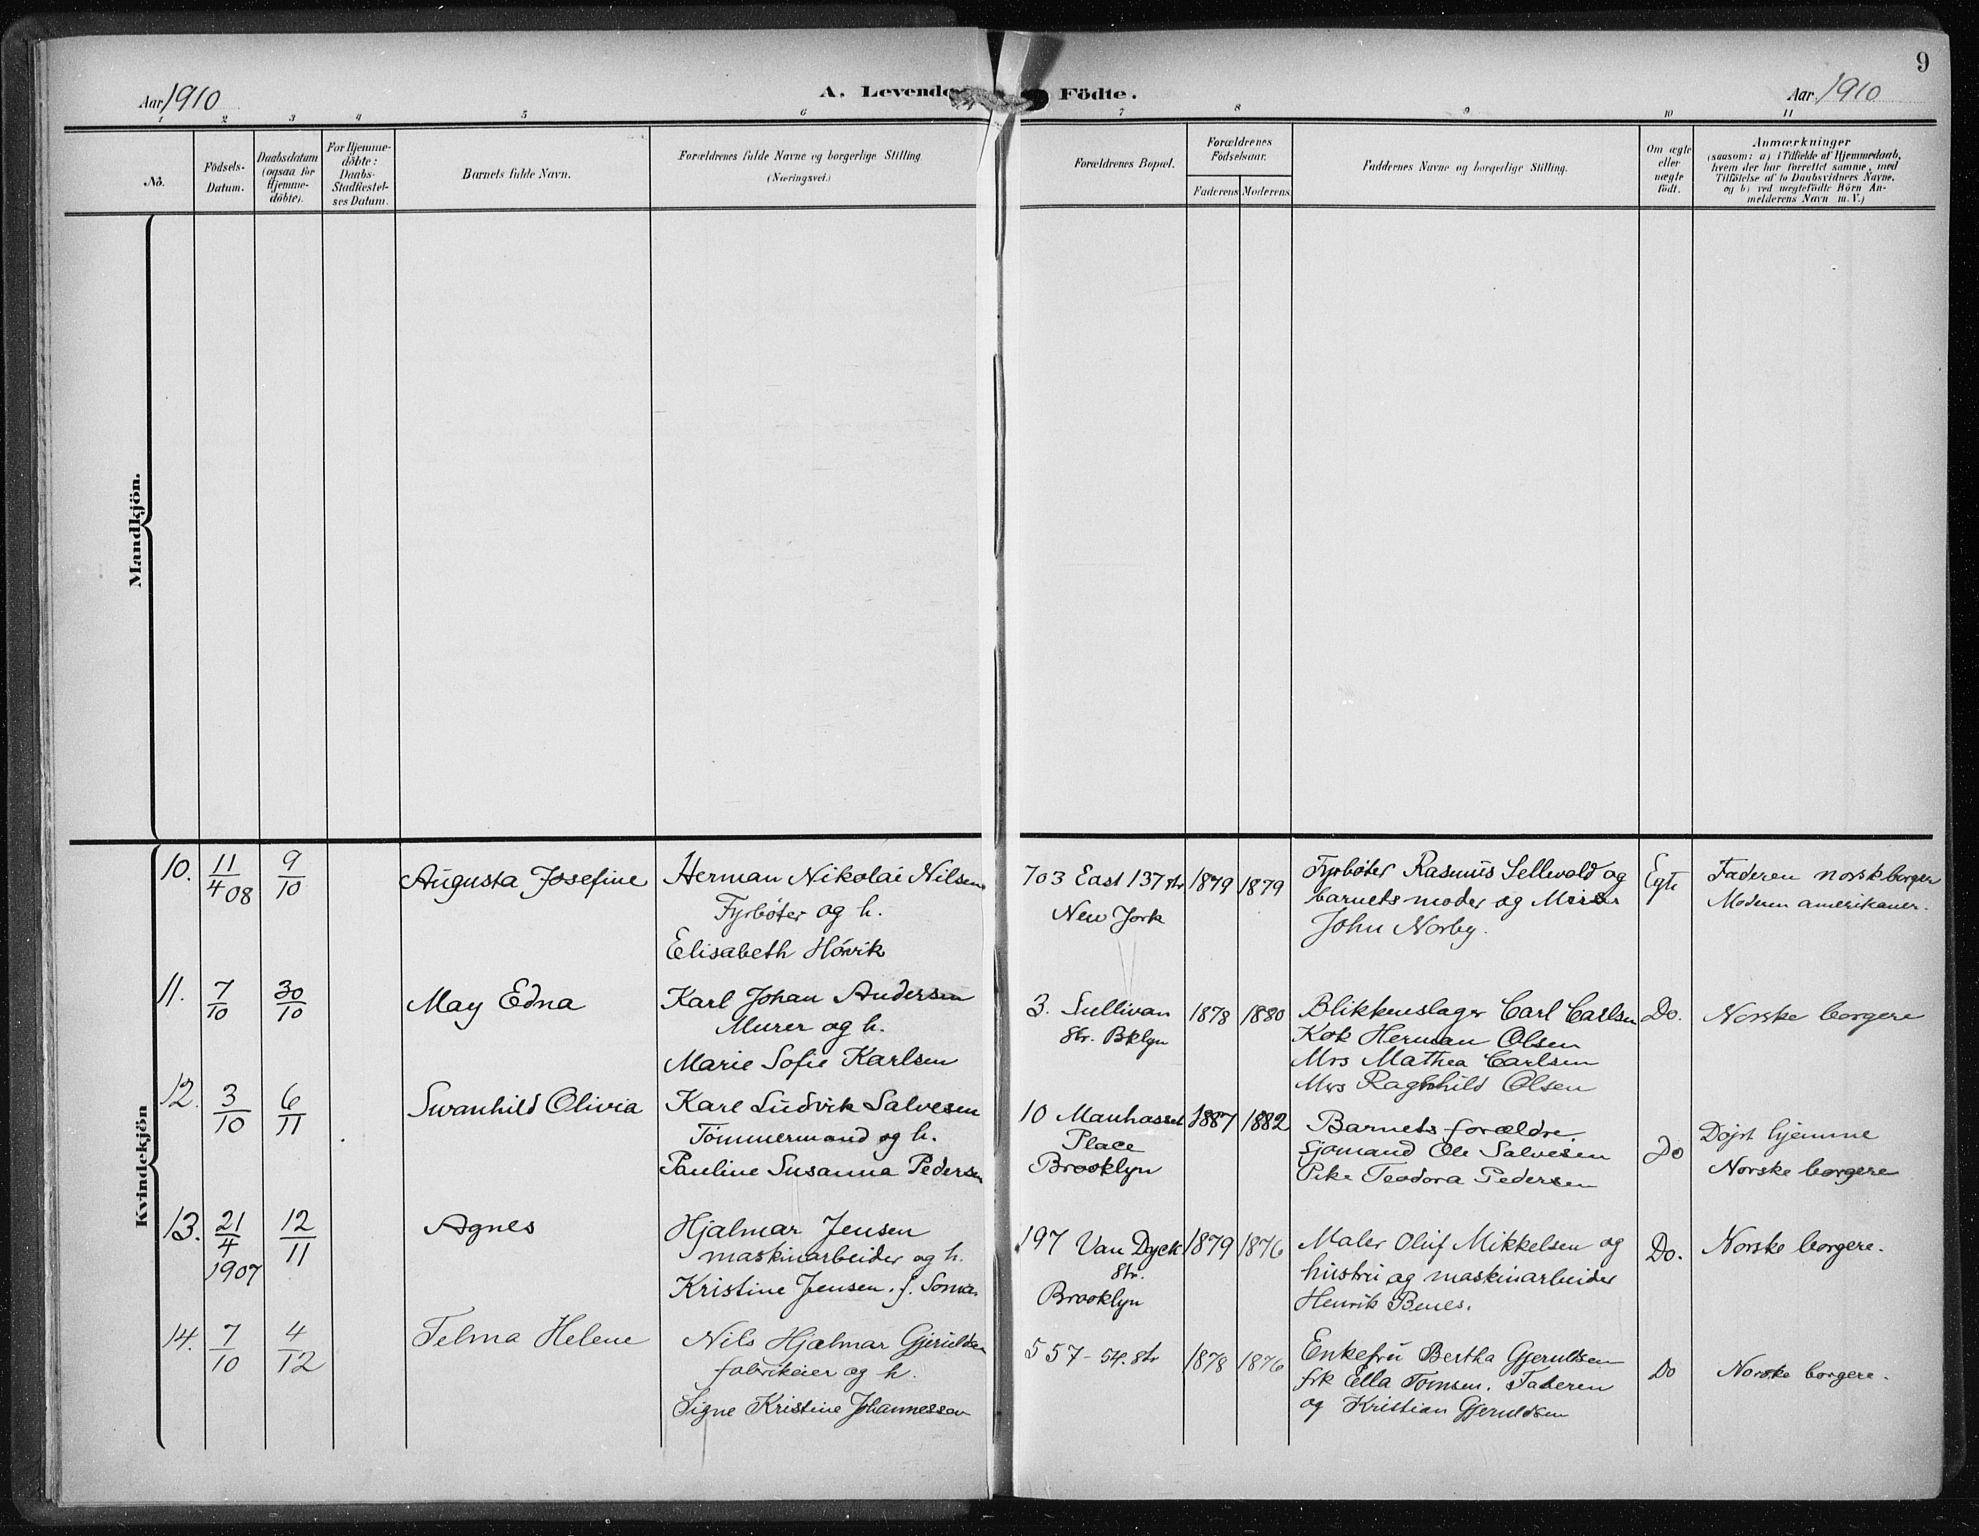 9
Aar 1910
A. Levende Födte.
Aar 1910
1 2 3 4 5 6 7 8 9 10 11
No.
Födsels-
Datum.
Daabsdatum
(ogsaa for
Hjemme-
döbte).
For Hjemme-
döbte:
Daabs-
Stadfæstel-
ses Datum.
Barnets fulde Navn.
Forældrenes fulde Navne og borgerlige Stilling
(Næringsvei.)
Forældrenes Bopæl.
Forældrenes
Födselsaar.
Faderens Moderens
Faddernes Navne og borgerlige Stilling.
Om ægte
eller
uægte
födt.
Anmærkninger
(saasom: a) i Tilfælde af Hjemmedaab,
hvem der har forrettet samme, med
Tilföielse af to Daabsvidners Navne.
og b) ved uægtefödte Börn An-
melderens Navn m. V.)
Mandkjön.
Kvindekjön
10. 11/4 08
9/10
Augusta Josefine
Herman Nikolai Nilsen
Fyrbøter og h.
Elisabeth Hövik
703 East 137 str
New York
1879 1879
Fyrbøter Rasmus Sellevold og
barnets moder og
John Norby.
Egte
Faderen norsk borger
Moderen amerikaner.
11. 7/10
30/10
May Edna
Karl Johan Andersen
Murer og h.
Marie Sofie Karlsen
3. Sullivan
Str. Bklyn
1878 1880
Blikkenslager Carl Carlsen
Kok Herman Olsen
Mrs Mathea Carlsen
Mrs Raghild Olsen
Do.
Norske borgere
12. 3/10
6/11
Swanhild Olivia
Karl Ludvik Salvesen
Tömmermand og h.
Pauline Susanna Pedersen
10 Manhasset
Place
Brooklyn
1887 1882
Barnets forældre.
Sjømand Ole Salvesen
Pike Teodora Pedersen
Do
Døpt hjemme
Norske borgere
13. 21/4
1907
12/11
Agnes
Hjalmar Jensen
maskinarbeider og h.
Kristine Jensen. f.
197 Van Dyck
Str.
Brooklyn
1879 1876
Maler Oluf Mikkelsen og
hustru og maskinarbeider
Henrik Benes.
Do.
Norske borgere.
14. 7/10
4/12
Telma Helene
Nils Hjalmar Gjeruldsen
fabrikeier og h.
Signe Kristine Johannessen
557 - 54. Str
1878 1876
Enkefru Bertha Gjeruldsen
frk Ella Tomsen. Faderen
og Kristian Gjeruldsen
Do
Norske borgere.